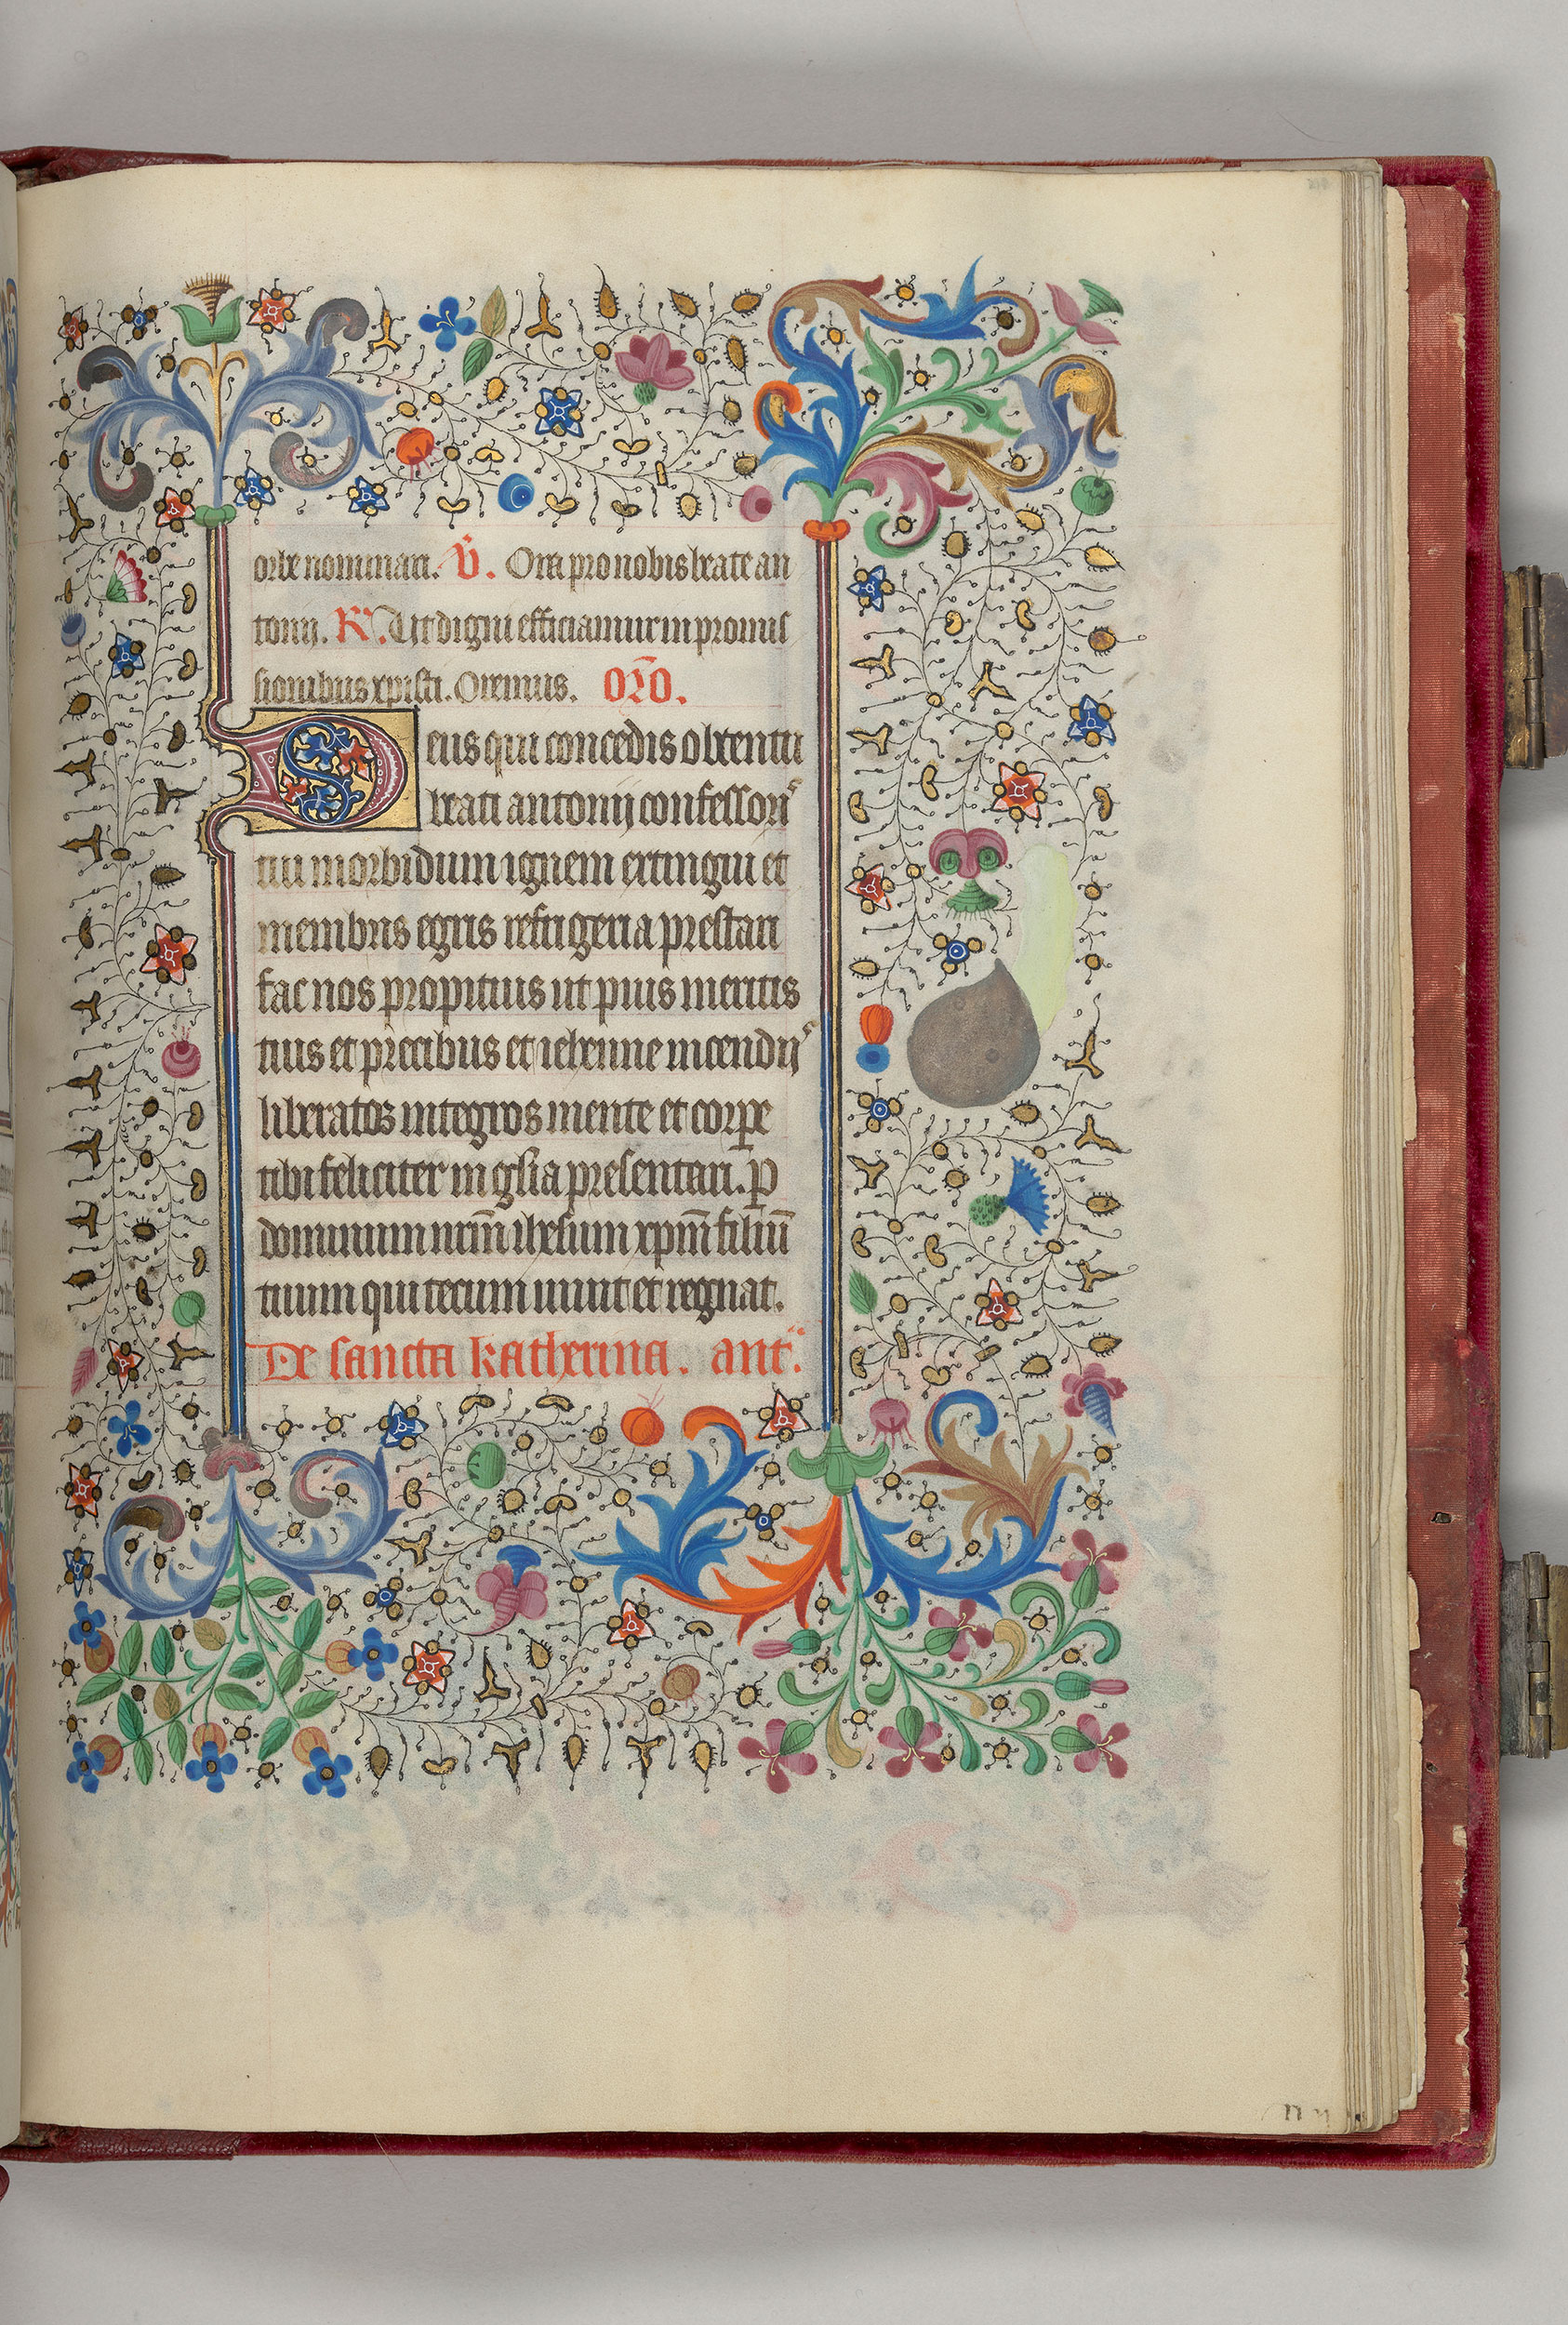 orbe nominari. V̄. Ora pro nobis beate an
tonij. R̄. Ut digni efficiamur in promis
sionibus xpisti. Oremus. Or̄o.
Deus qui concedis obtentu
beati antonij confessorꝰ
tui morbidum ignem extingui et
membris egris refrigeria prestari
fac nos propitius ut pius meritis
tius et precibus et iehenne incendijꝰ
liberatos integros mente et corꝑe
tibi feliciter in gl̄ia presentari. P
dominum nr̄m ihesum xp̄m filiū
tuum qui tecum uiuit et regnat.
De sancta katherina. ant̄.